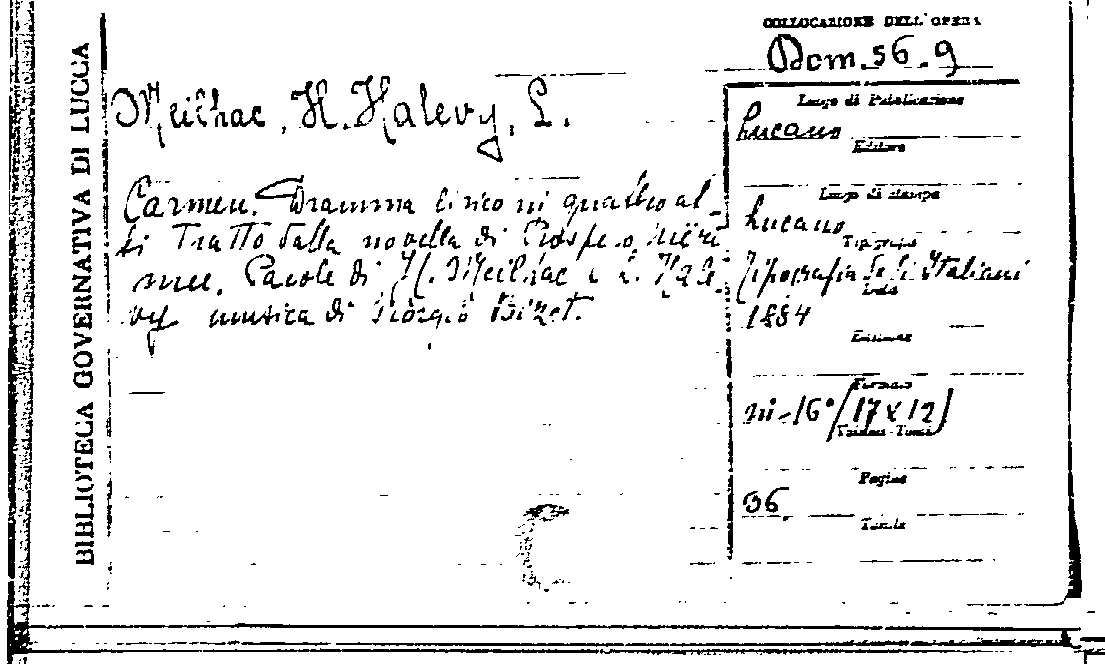 BIBLIOTECA GOVERNATIVA DI LUCCA
COLLOCAZIONE DELL'OPERA
Dom. 56.9
Meilhac, H. Halevy, L.
Carmen. Dramma lirico in quattro at-
ti tratto dalla novella di Prospero Méri
mee. Parole di H. Meilhac e L. Hale-
vy musica di Giorgio Bizet.
Luogo di Pubblicazione
Lucano
Editore
Luogo di stampa
Lucano
Tipografia
Tipografia
Italiani
1884
Edizione
Formato
in-16° (17 x 12)
Pagine
36.
Tavole